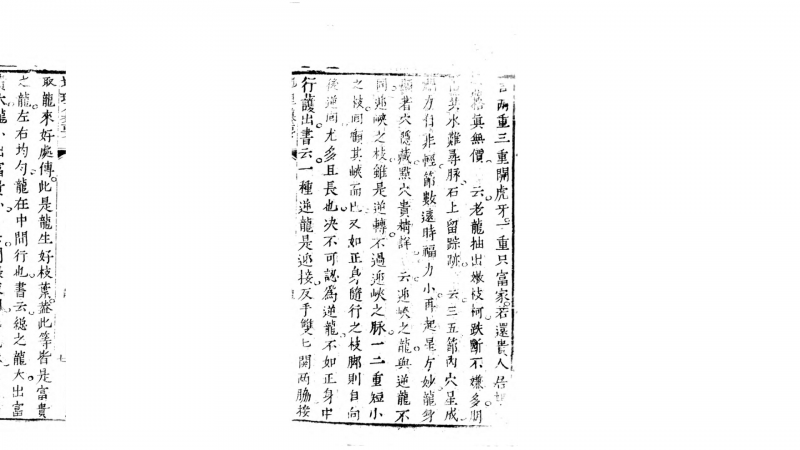 兩重三重開虎牙一重只富家若還貴人居
眞無價 云老龍抽出嫩枝柯跌斷不嫌多明
其水難尋脉石上留踪跡 云三五節內穴星成
力自非輕節數遠時福力小再起星方妙龍身
穴隱藏點穴貴精詳 云逆峽之龍與逆龍不
同逆峽之枝雖是逆轉不過逆峽之脉一二重短小
之枝回顧其峽而已又如正身隨行之枝脚則自向
後逆回尤多且長也决不可認爲逆龍不如正身中
行護出書云一種逆龍是逆接反手雙七開兩脇接
取龍來好處傳此是龍生好枝葉蓋此等皆是富貴
之龍左右均勻龍在中間行也書云總之龍大出富
大龍小出富貴小